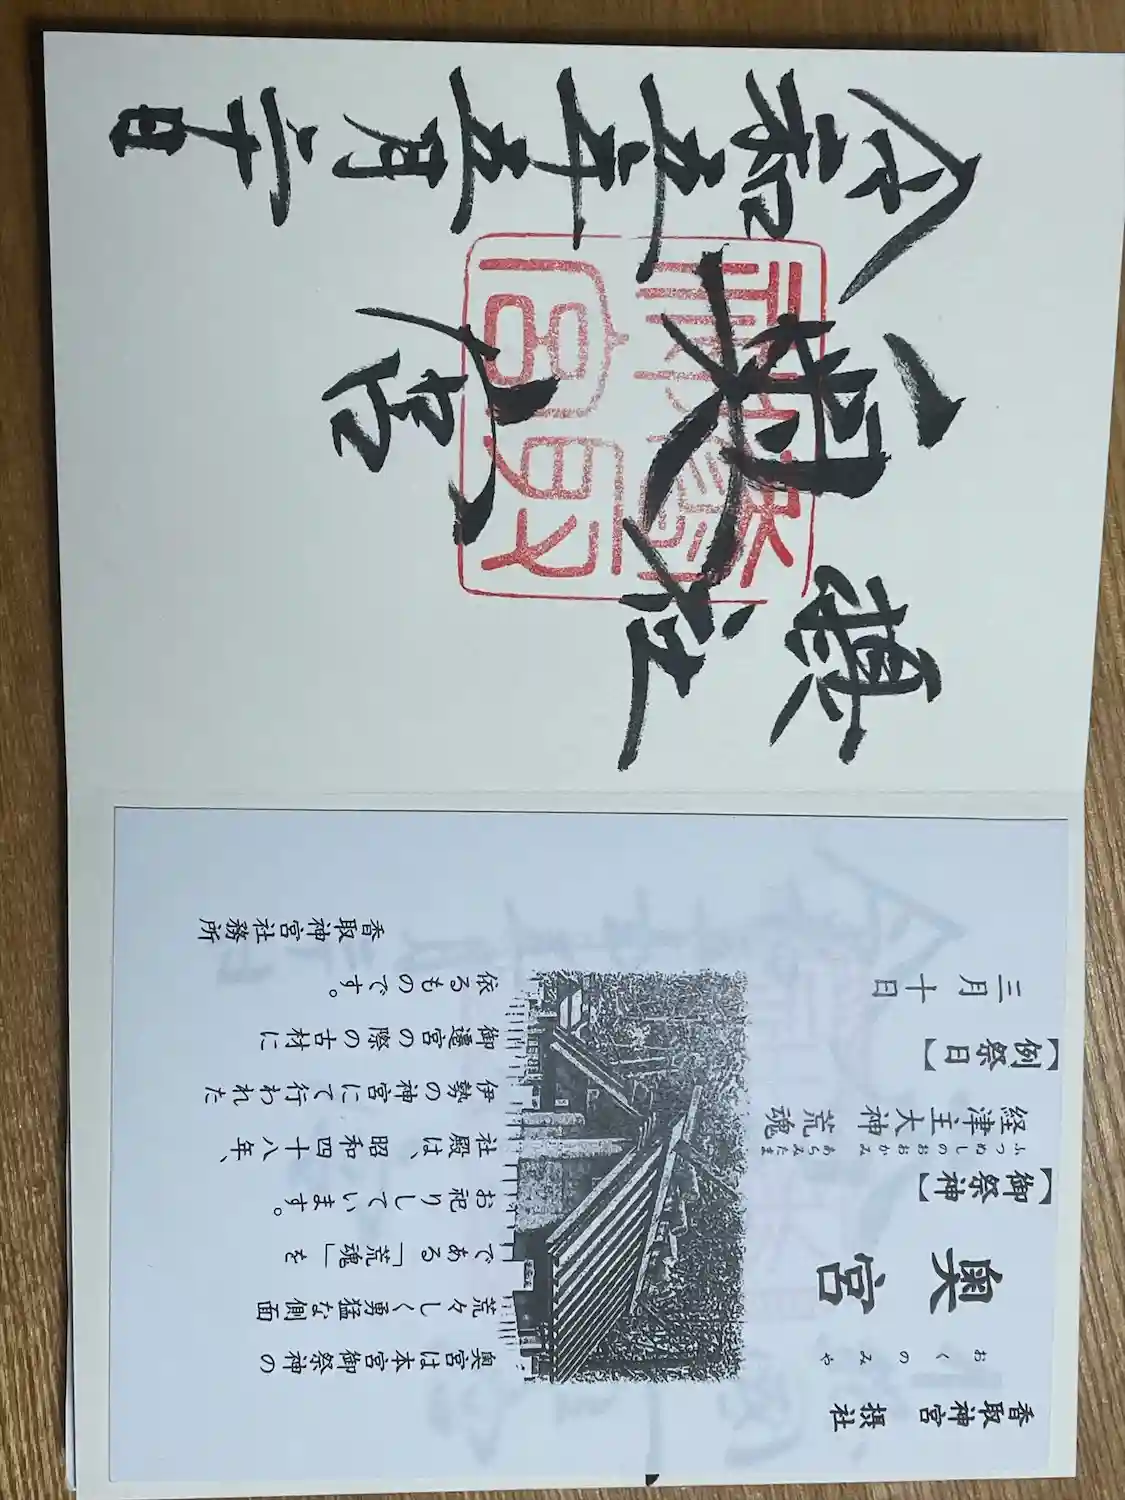 香取神宮 摂社
おくのみや
奥宮
【御祭神】
ふつぬしのおおかみ あらみたま
経津主大神 荒魂
【例祭日】
三月十日
奥宮は本宮御祭神の
荒々しく勇猛な側面
である「荒魂」を
お祀りしています。
社殿は、昭和四十八年、
伊勢の神宮にて行われた
御遷宮の際の古材に
依るものです。
香取神宮社務所
令和五年五月二十日